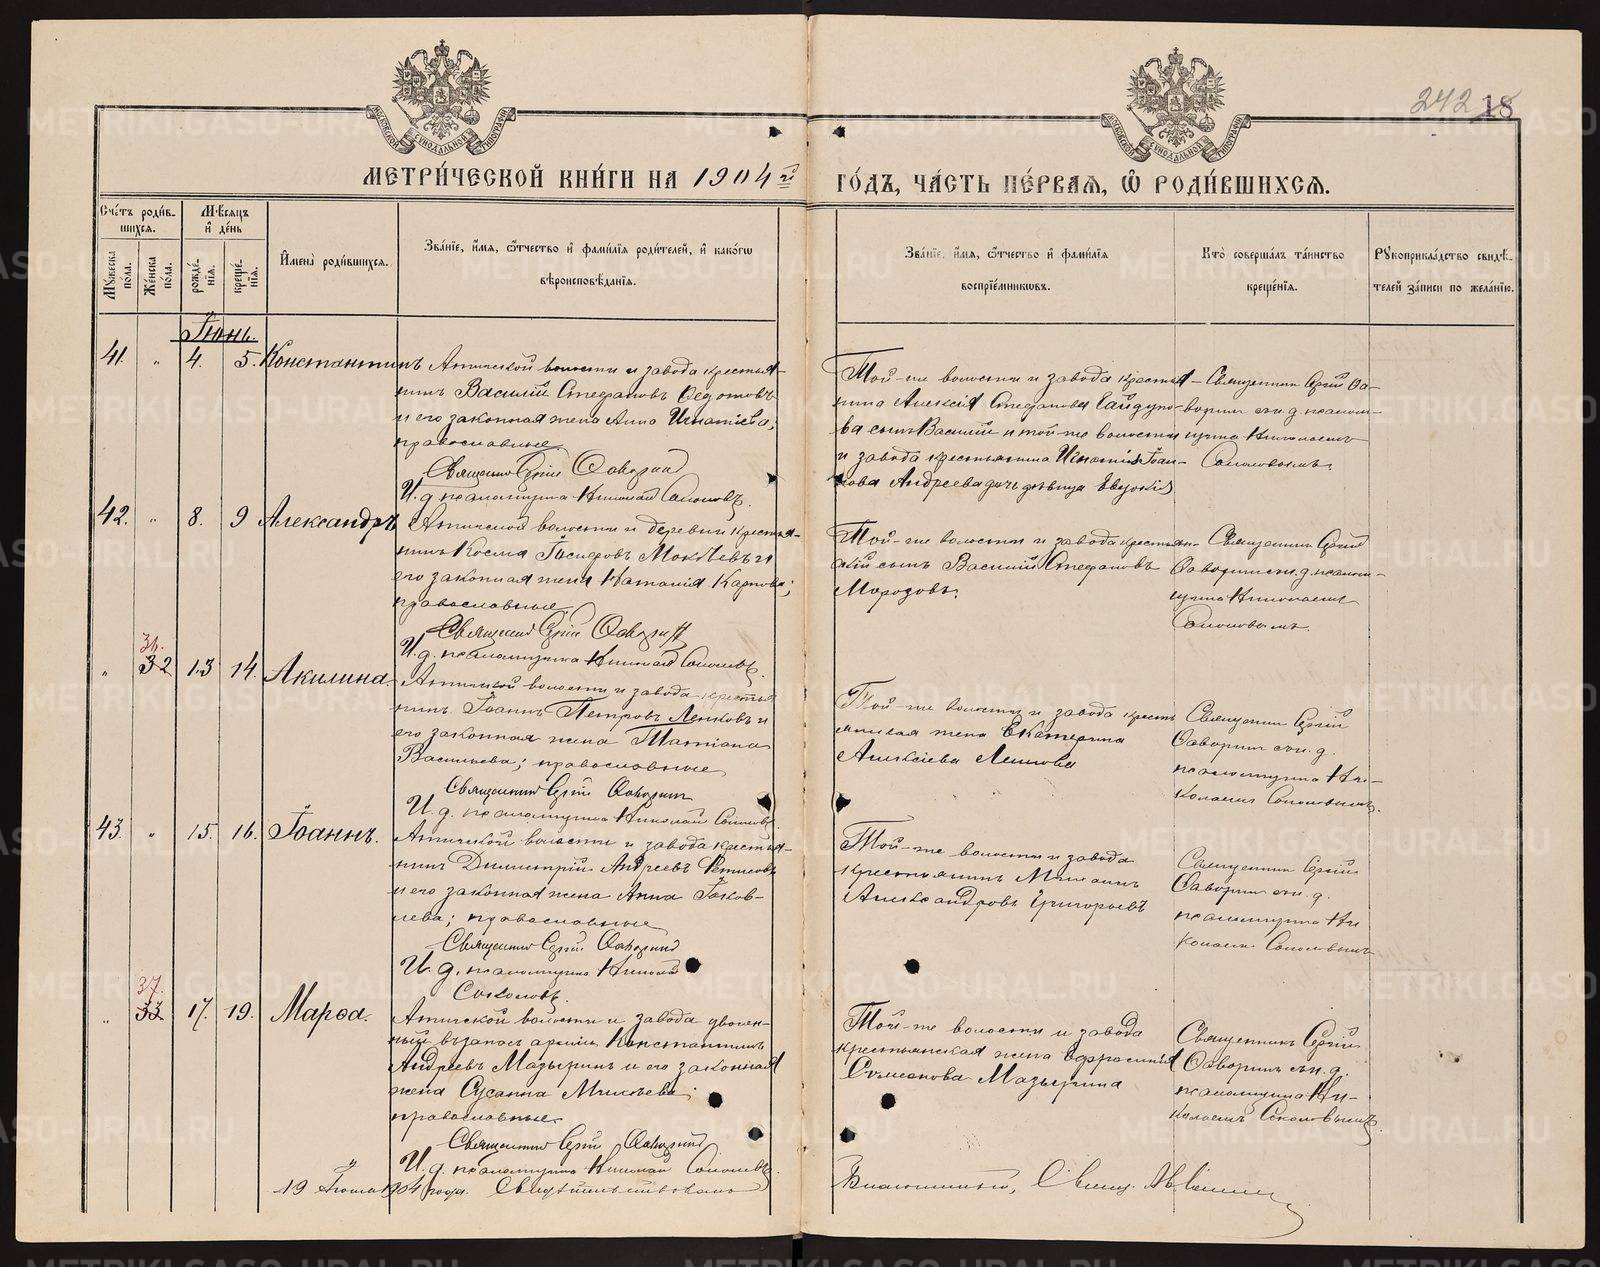 242 18
МОСКОВСКОЙ СѴНОДАЛЬНОЙ ТИПОГРАФІИ
МОСКОВСКОЙ СѴНОДАЛЬНОЙ ТИПОГРАФІИ
МЕТРИ́ЧЕСКОЙ КНИ́ГИ НА 1904 й
ГО́ДЪ, ЧА́СТЬ ПЕ́РВАѦ, Ѽ РОДИ́ВШИХСѦ.
Сче́тъ роди́в-
шихсѧ.
Му́жеска пола.
Же́нска пола.
Мѣ́сѧцъ
и҆ де́нь
рожде́нїѧ.
креще́нїѧ.
И҆мена̀ роди́вшихсѧ.
Зва́нїе, и҆́мѧ, ѻ҆́тчество и҆ фами́лїѧ роди́телей, и҆ како́гѡ
вѣроисповѣ́данїѧ.
Зва́нїе, и҆́мѧ, ѻ҆́тчество и҆ фами́лїѧ
воспрїе́мникѡвъ.
Кто̀ соверша́лъ та́инство
креще́нїѧ.
Рꙋкоприкла́дство свидѣ́-
телей за́писи по жела́нїю.
Іюнь.
41. " 4. 5. Константинъ
Ачитской волости и завода крестья-
нинъ Василій Стефановъ Федотовъ
и его законная жена Анна Игнатіева;
православные.
Священникъ Сергій
И. д. псаломщика Николай Соколовъ.
Той-же волости и завода крестья-
нина Алексія Стефанова Гайдуко-
ва сынъ Василій и той-же волости
и завода крестьянина Игнатія Іоан-
нова Андреева дочь дѣвица Евдокія
Священникъ Сергій
съ и. д. псалом-
щика Николаемъ
Соколовымъ.
42. " 8. 9 Александръ
Ачитской волости и деревни крестья-
нинъ Косма Іосифовъ Мокѣевъ и
его законная жена Наталія Карпова;
православные.
Священникъ Сергій
И. д. псаломщика Николай Соколовъ.
Той-же волости и завода крестьян-
скій сынъ Василій Стефановъ
Морозовъ.
Священникъ Сергій
съ и. д. псалом-
щика Николаемъ
Соколовымъ.
36.
" 32 13 14. Акилина.
Ачитской волости и завода крестья
нинъ Іоаннъ Петровъ Лепиховъ и
его законная жена Татіана
Васильева; православные
Священникъ Сергій
И. д. псаломщика Николай Соколовъ.
Той-же волости и завода кресть
янская жена Екатерина
Алексіева
Священникъ Сергій
съ и. д.
псаломщика Ни-
колаемъ Соколовымъ.
43. " 15. 16. Іоаннъ.
Ачитской волости и завода крестья-
нинъ Димитрій Андреевъ
и его законная жена Анна Іаков-
лева; православные
Священникъ Сергій
И. д. псаломщика Николай
Соколовъ.
Той-же волости и завода
крестьянинъ Михаилъ
Александровъ Григорьевъ
Священникъ Сергій
съ и. д.
псаломщика Ни
колаемъ Соколовымъ
37.
" 33 17. 19. Марѳа.
Ачитской волости и завода уволен-
ный въ запасъ арміи Константинъ
Андреевъ Мазыринъ и его законная
жена Сусанна
православные.
Священникъ Сергій
И. д. псаломщика Николай Соколовъ.
Той-же волости и завода
крестьянская жена Ефросинія
Симеонова Мазырина
Священникъ Сергій
съ и. д.
псаломщика Ни-
колаемъ Соколовымъ.
19 1904 года. Свидѣтельствовалъ
Благочинный, Свящ.
METRIKI.GASO-URAL.RU